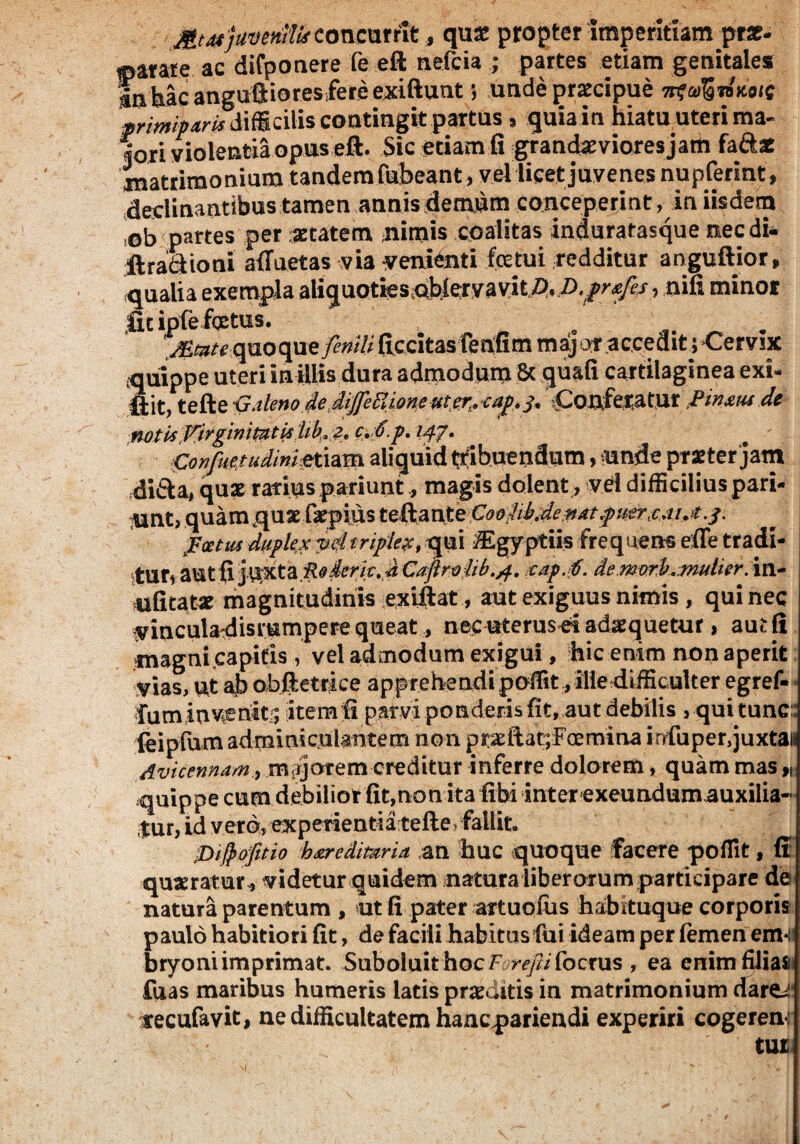 Ætas juvenilis concurrit, quæ propter imperitiam præ-
parare ac disponere se est nescia ; partes etiam genitales
in hâc angustiores ferè existunt ; undè præcipuè
primiparis difficilis contingit partus, quia in hiatu uteri ma-
jori violentiâ opus est. Sic etiam si grandæviores jam factæ
matrimonium tandem subeant, vel licet juvenes nupserint,
declinantibus tamen annis demùm conceperint, in iisdem
ob partes per ætatem nimis coalitas induratasque nec di-
stractioni assuetas via venienti fœtui redditur angustior,
qualia exempla aliquoties observavit D. D. præses, nisi minor
sit ipse fœtus.
Ætate quoque senili siccitas sensim major accedit ; Cervix
quippe uteri in illis dura admodum & quasi cartilaginea exi-
stit, teste Galeno de dissectione uter. cap. 3. Conferatur Pinæus de
notis Virginitatis lib. 2. c. 6. p. 147.
Consuetudini etiam aliquid tribuendum, unde præter jam
dicta, quæ rarius pariunt, magis dolent, vel difficilius pari-
unt, quàm quæ sæpiùs testante Coo lib. de nat. puer. c. 11. t. 3.
Fœtus duplex vel triplex, qui Ægyptiis frequens esse tradi-
tur, aut si juxta Roderic. à Castro lib. 4. cap. 6. de morb. mulier. in-
usitatæ magnitudinis existat, aut exiguus nimis, qui nec
vincula disrumpere queat, nec uterus ei adæquetur, aut si
magni capitis, vel admodum exigui, hic enim non aperit
vias, ut ab obstetrice apprehendi possit, ille difficulter egres-
sum invenit ; item si parvi ponderis fit, aut debilis, qui tunc
seipsum adminiculantem non præstat ; Fœmina insuper, juxta
Avicennam, majorem creditur inferre dolorem, quàm mas,
quippe cum debilior sit, non ita sibi inter exeundum auxilia-
tur, id verò, experientiâ teste, fallit.
Dispositio hæreditaria an huc quoque facere possit, si
quæratur, videtur quidem natura liberorum participare de
naturâ parentum, ut si pater artuosus habituque corporis
paulò habitiori sit, de facili habitus sui ideam per semen em-
bryoni imprimat. Suboluit hoc Foresti socrus, ea enim filias
suas maribus humeris latis præditis in matrimonium dare
recusavit, ne difficultatem hanc pariendi experiri cogeren-
tur